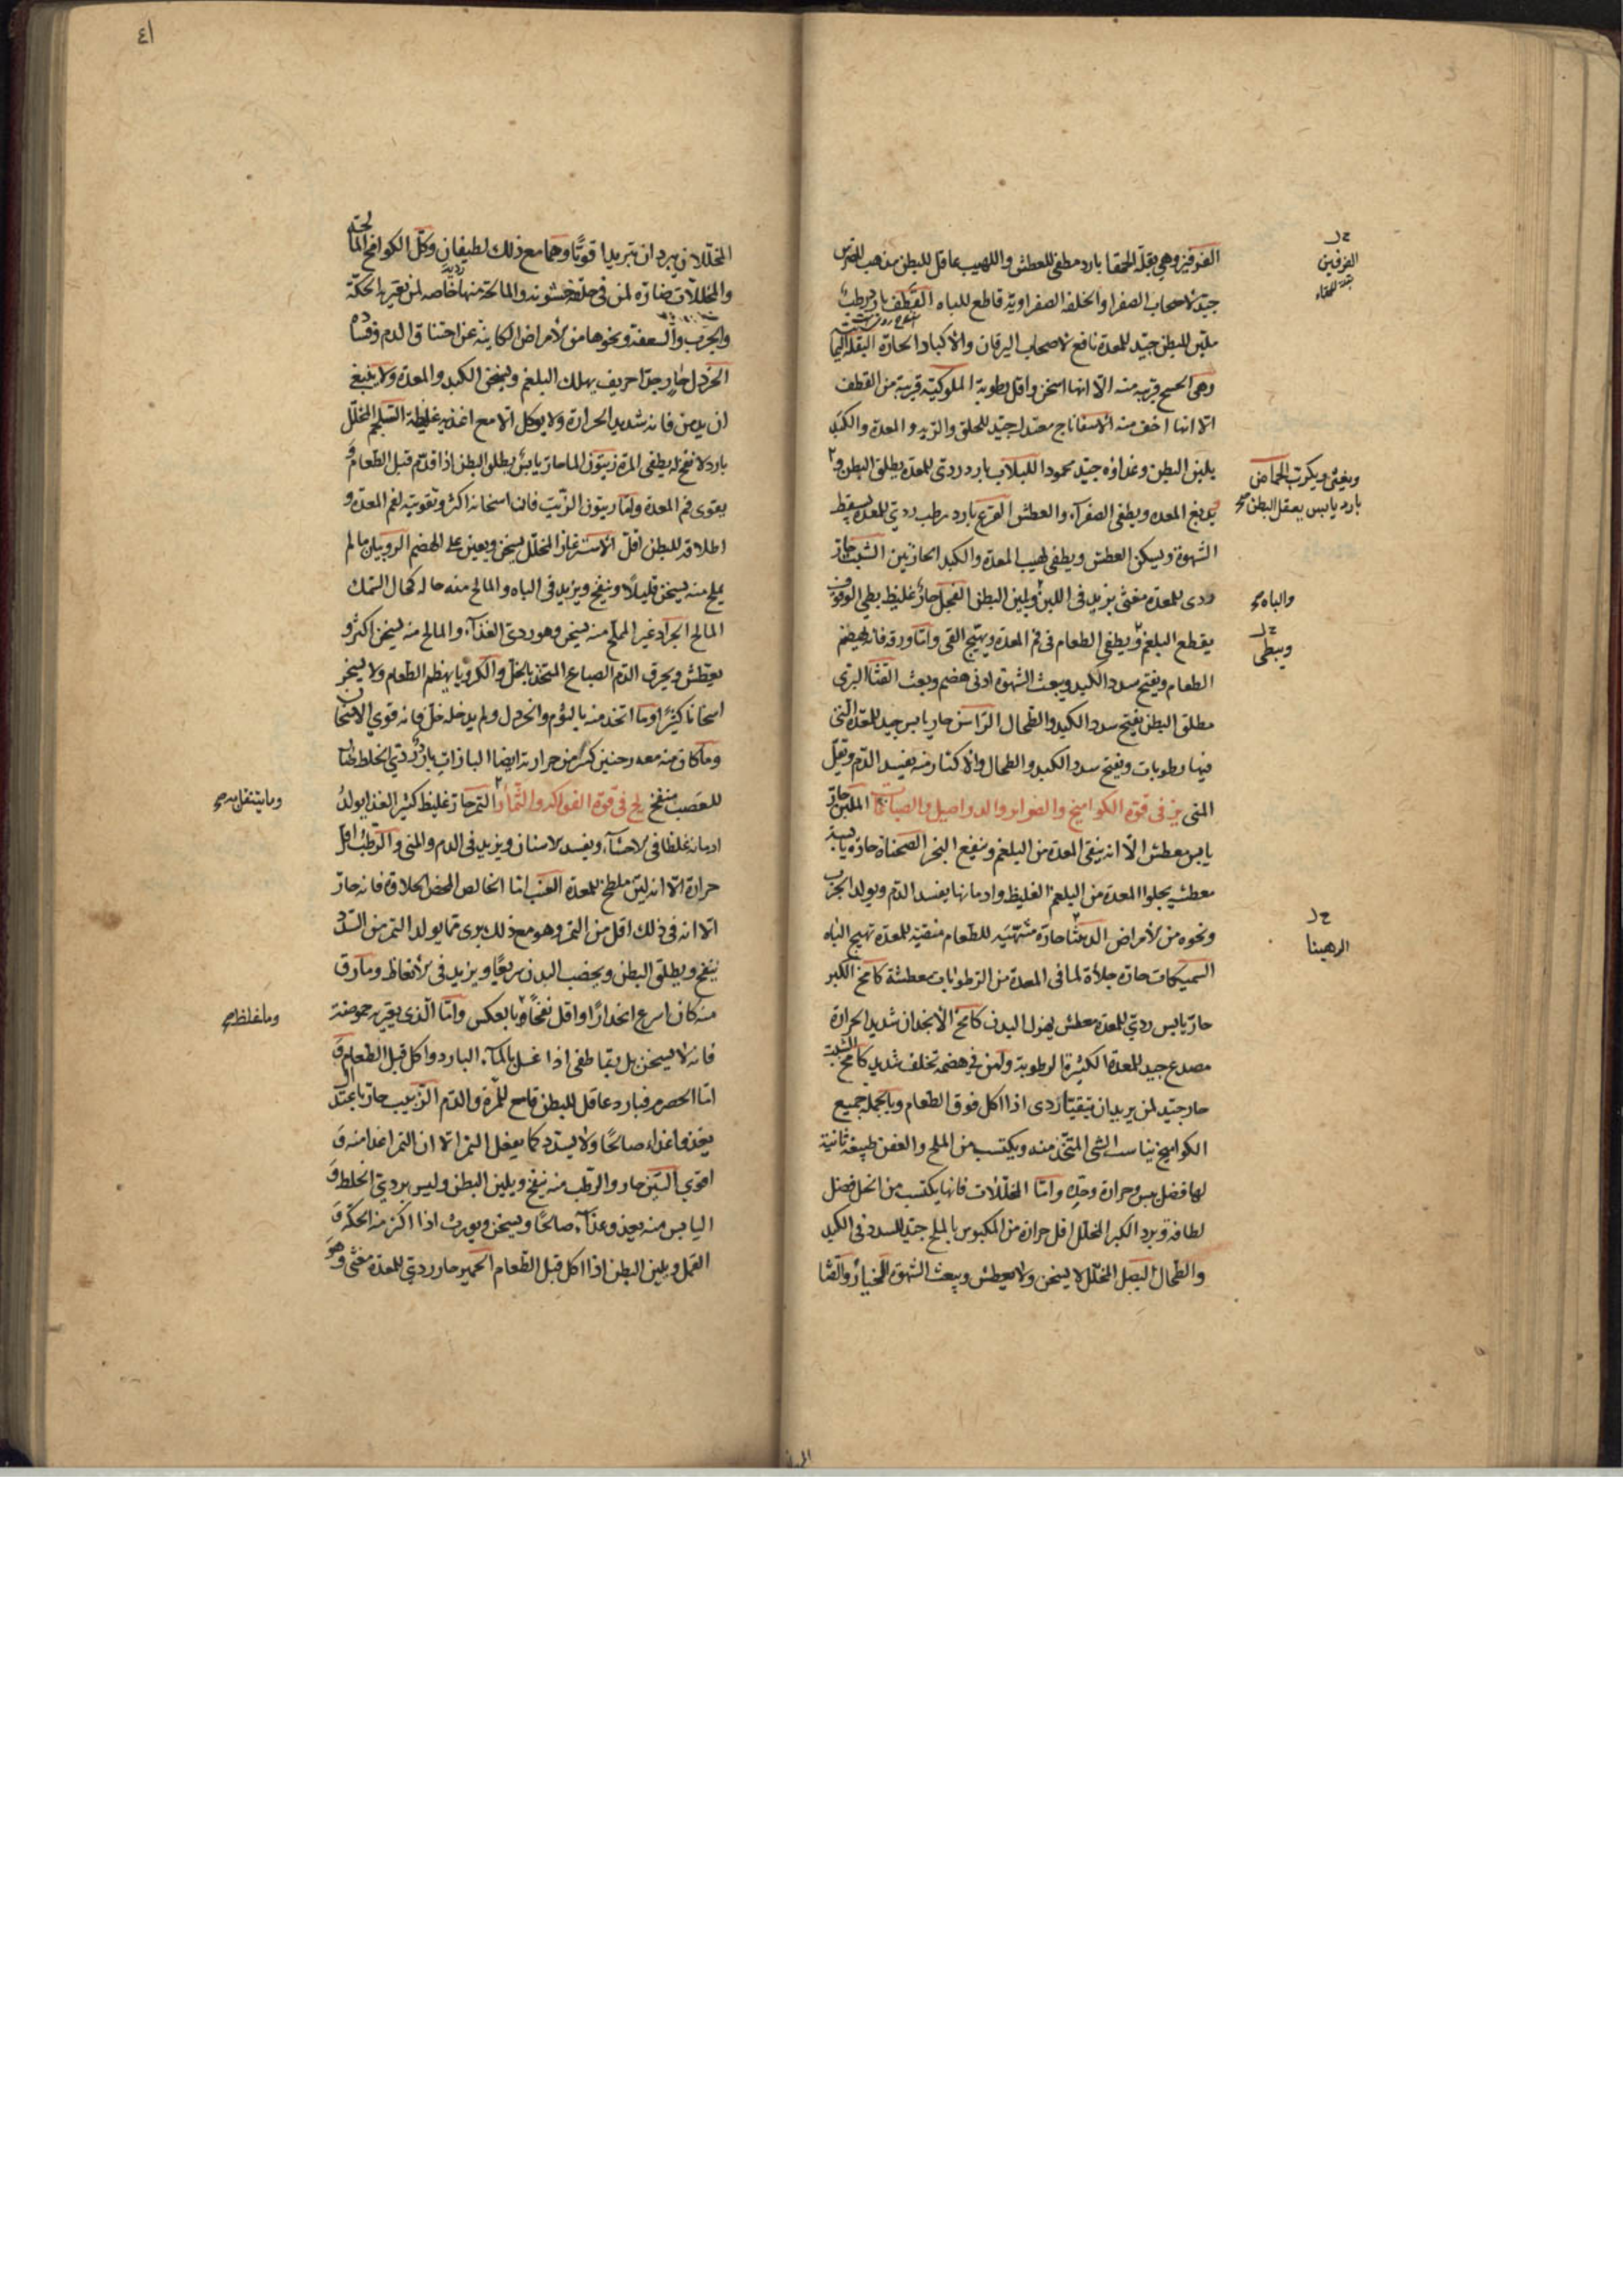 الفرفين وهي بقلة الحمقا بارد مطفى للعطش واللهيب عاقل للبطن مذهب للضرس
جيد لاصحاب الصفرا والخلفة الصفراوية قاطع للباه القطف بارد رطب
ملين للبطن جيد للمعدة نافع لاصحاب اليرقان والاكباد الحارة البقلة اليما
وهى قريبة منه الا انها اسخن واقل رطوبة الملوكية قريبة من القطف
الا انها اخف منه الاسفاناج معتدل جيد للحلق والرية والمعدة والكبد
يلين البطن وغذاؤه جيد محمود اللبلاب بارد ردى للمعدة يطلق البطن و
يدبغ المعدة ويطفى الصفراء والعطش القرع بارد رطب ردي للمعدة يسقط
الشهوة ويسكن العطش ويطفى لهيب المعدة والكبد الحارتين الشبث حار
ردى للمعدة مغثى يزيد فى اللبن ويلين البطن الفجل حار غليظ بطى الوقوف
يقطع البلغم ويطفى الطعام فى فم المعدة ويهيج القى واما ورقه فانه يهضم
الطعام ويفتح سدد الكبد ويبعث الشهوة ادنى هضم وبعث القثا البرى
مطلق البطن يفتح سدد الكبد والطحال الراسن حار يابس جيد للمعدة التى
فيها رطوبات ويفتح سدد الكبد والطحال والاكثار منه يفسد الدم ويقل
المنى يز فى قوة الكواميخ والصوابر والدواصيل والصباغ الملبن حار
يابس معطش الا انه ينقى المعدة من البلغم وينفع البخر الصحناة حارة يابسة
معطشه يجلوا المعدة من البلغم الغليظ وادمانها يفسد الدم ويولد الجرب
ونحوه من الامراض الدبيثا حارة مشهية للطعام منقية للمعدة تهيج الباه
السميكات حارة جلاة لما فى المعدة من الرطوبات معطشة كامخ الكبر
حار يابس ردي للمعدة معطش يهزل البدن كامخ الانجدان شديد الحرارة
مصدع جيد للمعدة الكثيرة الرطوبة ولمن فى هضمه تخلف شديد كامخ الشبث
حار جيد لمن يريد ان يتقيا ردى اذا اكل فوق الطعام وبالجملة جميع
الكواميخ يناسب الشى المتخذ منه ويكتسب من الملح والعفن طبيعة ثانية
لها فضل يبس وحرارة وحدة واما المخللات فانها يكتسب من الخل فضل
لطافة وبرد الكبر المخلل اقل حرارة من المكبوس بالملح جيد للسدد فى الكبد
والطحال البصل المخلل لا يسخن ولا يعطش ويبعث الشهوة الخيار والقثا
الفرفين
بقلة الحمقاء
ويغثى ويكرب الحماض
بارد يابس يعقل البطن صح
والباه صح
ويبطى
الرهبينا
٤١
المخللان يبردان تبريدا قويا وهما مع ذلك لطيفان وكل الكوامخ المالحة
والمخللات ضارة لمن فى حلقه خشونة والمالحة منها خاصة لمن يعتريه الحكة
والجرب والسعفة ونحوها من الامراض الكاينة عن احتراق الدم وفساده
الخردل حار جدا حريف يهلك البلغم ويسخن الكبد والمعدة ولا ينبغى
ان يدمن فانه شديد الحرارة ولا يوكل الا مع اغذية غليظة السلجم المخلل
بارد لا نفخ له يطفى المرة زيتون الما حار يابس يطلق البطن اذا قدم قبل الطعام و
يقوى فم المعدة واما زيتون الزيت فانه اسخانه اكثر وتقويته لفم المعدة و
اطلاقه للبطن اقل الاشترغاز المخلل يسخن ويعين على الهضم الروبيان ما لم
يملح منه يسخن قليلا وينفخ ويزيد فى الباه والمالح منه حاله كحال السمك
المالح الجراد غير المملح منه يسخن وهو ردى الغذاء والمالح منه يسخن اكثر و
يعطش ويحرق الدم الصباغ المتخذ بالخل والكرويا يهضم الطعام ولا يسخن
اسخانا كثيرا وما اتخذ منه بالثوم والخردل ولم يدخله خل فانه قوي الاسخان
وما كان منه معه رخبين كسر من حرارته ايضا الباذات بارد ردي الخلط
للعصب منفخ لح فى قوة الفواكه والثمار التمر حار غليظ كثير الغذا يولد
ادمانه غلظا فى الاحشاء ويفسد الاسنان ويزيد فى الدم والمنى والرطب اقل
حرارة الا انه لين ملطخ للمعدة العنب اما الخالص المحض الحلاوة فانه حار
الا انه فى ذلك اقل من التمر وهو مع ذلك برى مما يولد التمر من السدد
ينفخ ويطلق البطن ويخصب البدن سريعا ويزيد فى الانعاظ وما رق
منه كان اسرع انحدارا واقل نفخا وبالعكس واما الذى يعتريه حموضة
فانه لا يسخن بل ربما طفى اذا غسل بالماء البارد واكل قبل الطعام و
اما الحصرم فبارد عاقل للبطن قامع للمرة والدم الزبيب حار باعتدال
يغذو غذاء صالحا ولا يسدد كما يفعل التمر الا ان التمر اغذا منه و
اقوي التين حار والرطب منه ينفخ ويلين البطن وليس بردي الخلط و
اليابس منه يغذو غذاء صالحا ويسخن ويورث اذا اكثر منه الحكة و
القمل ويلين البطن اذا اكل قبل الطعام الجميز حار ردي للمعدة مغثى وهو
وما يتنقل به صح
وما غلظ صح